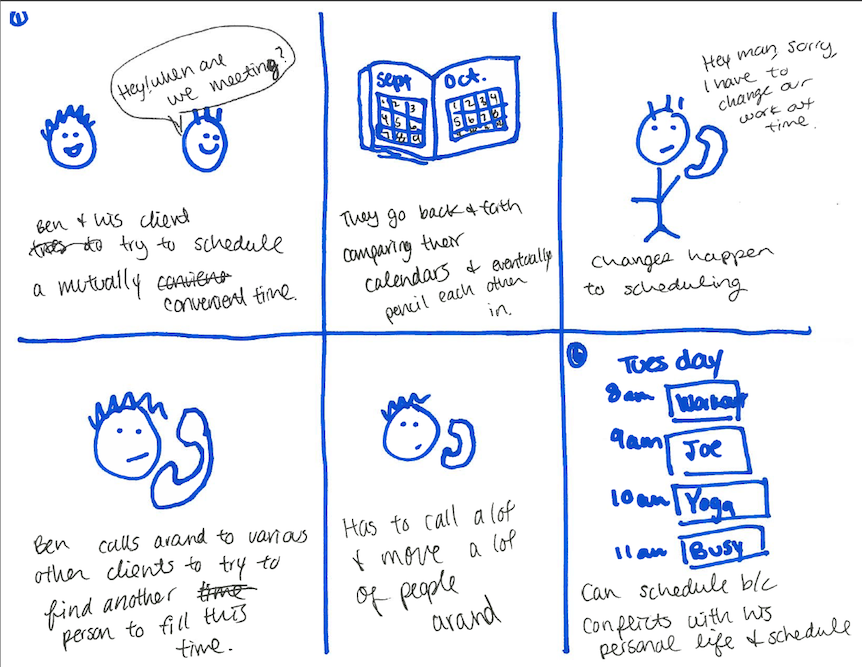 1
Hey! when are
we meeting?
Ben & his client
tries to try to schedule
a mutually convient
convenient time.
Sept Oct.
1 2 3 1 2 3 4
4 5 6 5 6 7 8
7 8 9
They go back & forth
comparing their
calendars & eventually
pencil each other
in.
Hey man, sorry,
I have to
change our
work out
time.
changes happen
to scheduling
Ben calls around to various
other clients to try to
find another time
person to fill this
time.
Has to call a lot
& move a lot
of people
around
6
Tuesday
8am Workout
9am Joe
10am Yoga
11am Busy
Can schedule b/c
conflicts with his
personal life & schedule